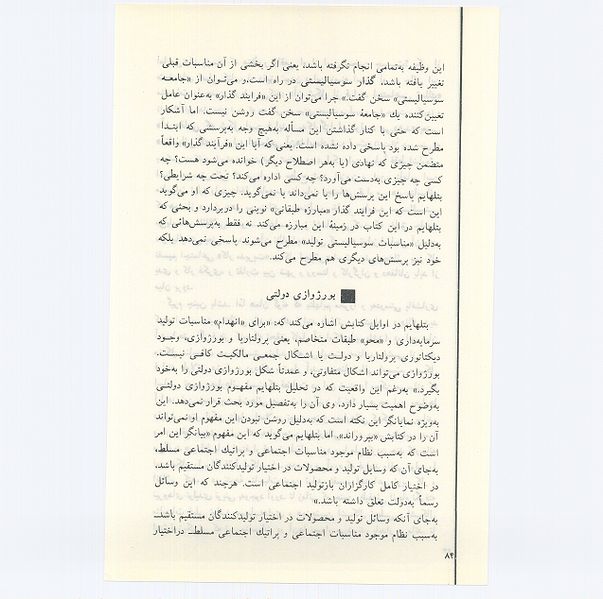 این وظیفه به‌تمامی انجام نگرفته باشد، یعنی اگر بخشی از آن مناسبات قبلی
تغییر یافته باشد. گذار سوسیالیستی در راه است،و می‌توان از «جامعه
سوسیالیستی» سخن گفت.» چرا می‌توان از این «فرایند گذار» به‌عنوان عامل
تعیین‌کننده یك «جامعهٔ سوسیالیستی» سخن گفت روشن نیست. اما آشکار
است که حتی با کنار گذاشتن این مسأله به‌هیچ وجه به‌پرسشی که ابتدا
مطرح شده بود پاسخی داده نشده است. یعنی که آیا این «فرآیند گذار» واقعاً
متضمن چیزی که نهادی (یا به‌هر اصطلاح دیگر) خوانده می‌شود هست؟ چه
کسی چه چیزی به‌دست می‌آورد؟ چه کسی اداره می‌کند؟ تحت چه شرایطی؟
بتلهایم پاسخ این پرسش‌ها را یا نمی‌داند یا نمی‌گوید. چیزی که او می‌گوید
این است که این فرایند گذار «مبارزه طبقاتی» نوینی را دربردارد و بحثی که
بتلهایم در این کتاب در زمینهٔ این مبارزه می‌کند نه فقط به‌پرسش‌هائی که
به‌دلیل «مناسبات سوسیالیستی تولید» مطرح می‌شوند پاسخی نمی‌دهد بلکه
خود نیز پرسش‌های دیگری هم مطرح می‌کند.
■ بورژوازی دولتی
بتلهایم در اوایل کتابش اشاره می‌کند که: «برای «انهدام» مناسبات تولید
سرمایه‌داری و «محو» طبقات متخاصم، یعنی پرولتاریا و بورژوازی، وجود
دیکتاتوری پرولتاریا و دولت یا اشکال جمعی مالکیت کافی نیست.
بورژوازی می‌تواند اشکال متفاوتی، و عمدتاً شکل بورژوازی دولتی را به‌خود
بگیرد.» به‌رغم این واقعیت که در تحلیل بتلهایم مفهوم بورژوازی دولتی
به‌وضوح اهمیت بسیار دارد، وی آن را به‌تفصیل مورد بحث قرار نمی‌دهد. این
به‌ویژه نمایانگر این نکته است که به‌دلیل روشن نبودن این مفهوم او نمی‌تواند
آن را در کتابش «بپروراند». اما بتلهایم می‌گوید که این مفهوم «بیانگر این امر
است که به‌سبب نظام موجود مناسبات اجتماعی و پراتیك اجتماعی مسلط،
به‌جای آن که وسایل تولید و محصولات در اختیار تولیدکنندگان مستقیم باشد،
در اختیار کامل کارگزاران بازتولید اجتماعی است. هرچند که این وسائل
رسماً به‌دولت تعلق داشته باشد.»
به‌جای آنکه وسائل تولید و محصولات در اختیار تولیدکنندگان مستقیم باشد_
به‌سبب نظام موجود مناسبات اجتماعی و پراتیك اجتماعی مسلط_ دراختیار
۸۴